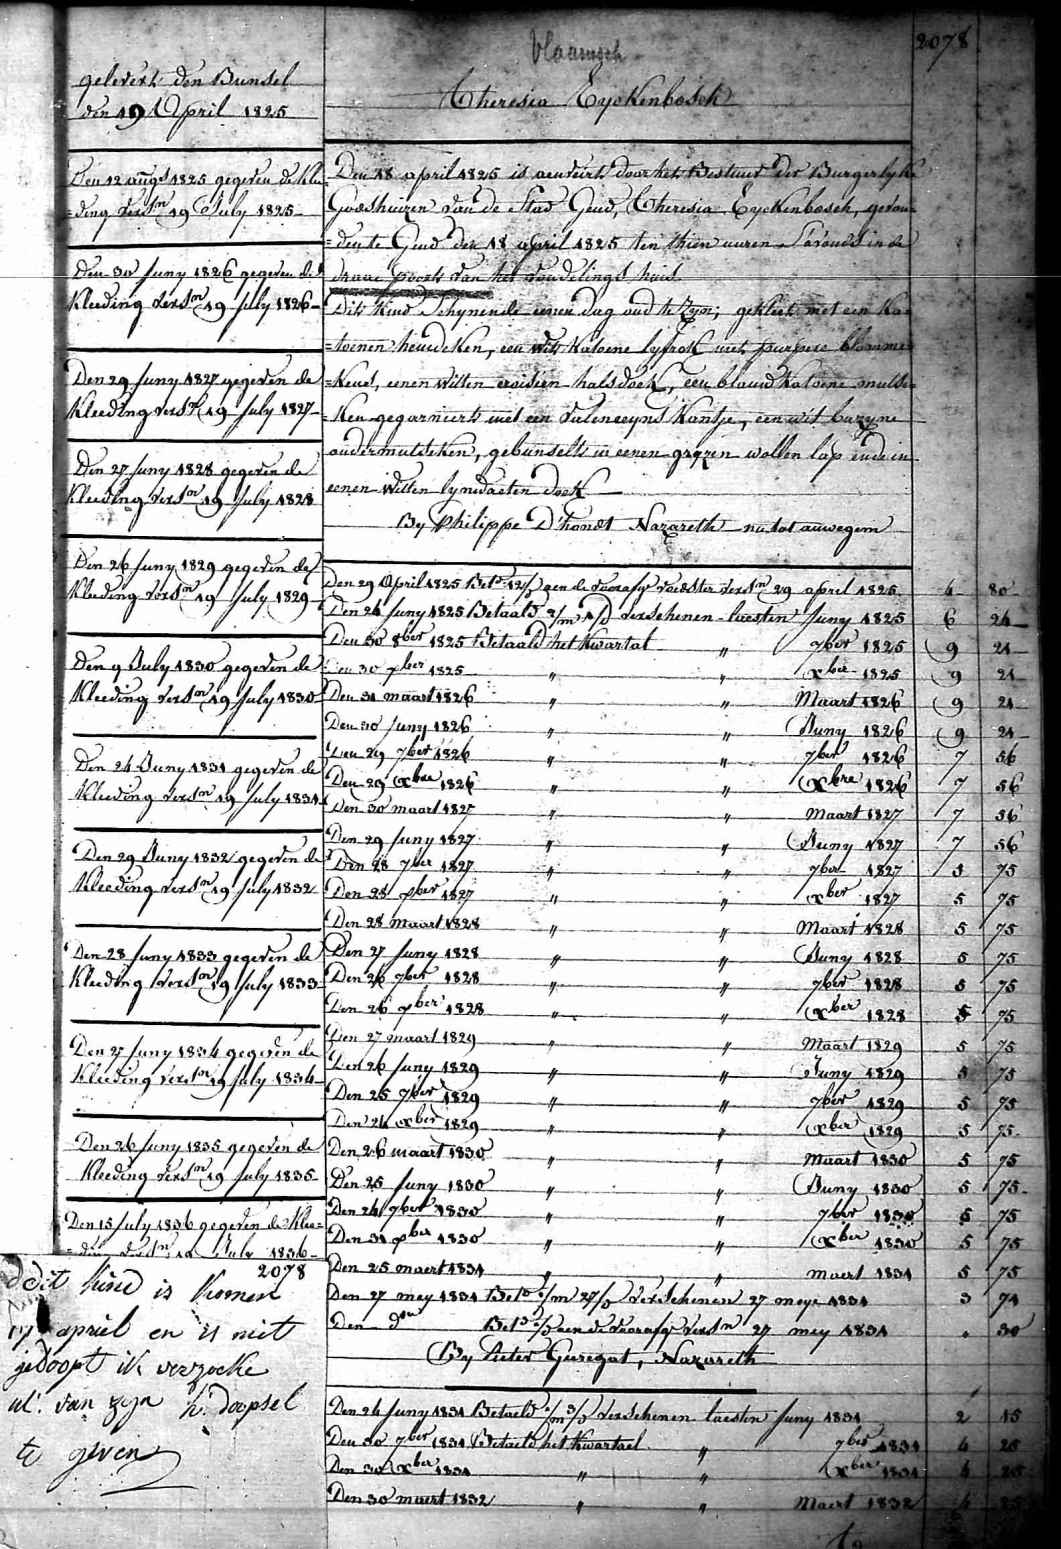 2078
Vlaamsch
Theresia Eyckenbosch
gelevert den Bunsel
den 19 April 1825
Den 12 augs 1825 gegeven de Klee-
=ding versn 19 July 1825
Den 30 Juny 1826 gegeven de
Kleeding versn 19 July 1826
Den 29 Juny 1827 gegeven de
Kleeding versn 19 July 1827
Den 27 Juny 1828 gegeven de
Kleeding versn 19 July 1828
Den 26 Juny 1829 gegeven de
Kleeding versn 19 July 1829
Den 9 July 1830 gegeven de
Kleeding versn 19 July 1830
Den 24 Juny 1831 gegeven de
Kleeding versn 19 July 1831
Den 29 Juny 1832 gegeven de
Kleeding versn 19 July 1832
Den 28 Juny 1833 gegeven de
Kleeding versn 19 July 1833
Den 27 Juny 1834 gegeven de
Kleeding versn 19 July 1834
Den 26 Juny 1835 gegeven de
Kleeding versn 19 July 1835
Den 15 July 1836 gegeven de Klee=
=ding versn 19 July 1836
2078
dit kind is komen
17 april en is niet
gedoopt ik verzoeke
ul. van zyn h. doopsel
te geven
Den 18 april 1825 is aenveirt door het Bestuur der Burgerlyke
Godshuizen van de Stad Gend, Theresia Eyckenbosch, gevon-
=den te Gend den 18 april 1825 ten thien uuren s'avonds in de
draae poorte van het vondelings huis
Dit kind schynende eenen dag oud te zyn; gekleet met een ka-
=toenen hemdeken, een wit katoene lyfrok met purpere blomme-
=kens, eenen witten croisien halsdoek, een blauw katoene muts-
=ken gegarniert met een valenceyns kantje, een wit bazyne
ondermutsteken, gebunselt in eenen gryzen wollen lap ende in
eenen witten lynwaeten doek
By Philippe D'hondt Nazareth naetot auwegem
Den 29 April 1825 Bets 12/ aen de voorafg voedster versn 29 april 1825 4 80
Den 24 Juny 1825 Betaald 2/m 1/d verschenen laesten Juny 1825 6 24
Den 30 8ber 1825 Betaald het kwartal " 7ber 1825 9 21
Den 30 xber 1825 " " xber 1825 9 21
Den 31 maart 1826 " " Maart 1826 9 21
Den 30 Juny 1826 " " Juny 1826 9 21
Den 29 7ber 1826 " " 7ber 1826 7 56
Den 29 xbre 1826 " " xbre 1826 7 56
Den 30 maart 1827 " " Maart 1827 7 56
Den 29 Juny 1827 " " Juny 1827 7 56
Den 28 7ber 1827 " " 7ber 1827 5 75
Den 28 xber 1827 " " xber 1827 5 75
Den 28 maart 1828 " " Maart 1828 5 75
Den 27 Juny 1828 " " Juny 1828 5 75
Den 26 7ber 1828 " " 7ber 1828 5 75
Den 26 xber 1828 " " xber 1828 5 75
Den 27 maart 1829 " " Maart 1829 5 75
Den 26 Juny 1829 " " Juny 1829 5 75
Den 25 7ber 1829 " " 7ber 1829 5 75
Den 24 xber 1829 " " xber 1829 5 75
Den 26 maart 1830 " " Maart 1830 5 75
Den 25 Juny 1830 " " Juny 1830 5 75
Den 24 7ber 1830 " " 7ber 1830 5 75
Den 31 xber 1830 " " xber 1830 5 75
Den 25 maert 1831 " " maert 1831 5 75
Den 27 mey 1831 Bets 1/m 27/d verschenen 27 meye 1831 3 74
Den do Bets aen de voorafg versn 27 mey 1831 . 30
By Pieter Guregat, Nazareth
Den 24 Juny 1831 Betaeld 1/m 3/d verschenen laesten Juny 1831 2 15
Den 30 7ber 1831 Betaeld het kwartael " 7ber 1831 4 25
Den 30 xber 1831 " " xber 1831 4 25
Den 30 maert 1832 " " Maert 1832 4 25